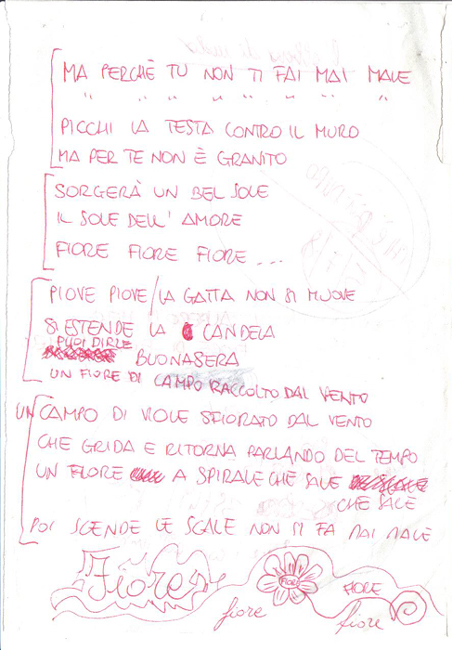 MA PERCHÈ TU NON TI FAI MAI MALE
" " " " " " "
PICCHI LA TESTA CONTRO IL MURO
MA PER TE NON È GRANITO
SORGERÀ UN BEL SOLE
IL SOLE DELL' AMORE
FIORE FIORE FIORE ...
PIOVE PIOVE / LA GATTA NON SI MUOVE
SI ESTENDE LA CANDELA
PUOI DIRLE
BUONASERA
UN FIORE DI CAMPO RACCOLTO DAL VENTO
UN CAMPO DI VIOLE SFIORATO DAL VENTO
CHE GRIDA E RITORNA PARLANDO DEL TEMPO
UN FIORE A SPIRALE CHE SALE
CHE SALE
POI SCENDE LE SCALE NON SI FA MAI MALE
Fiore
FIORE
FIORE
fiore
fiore